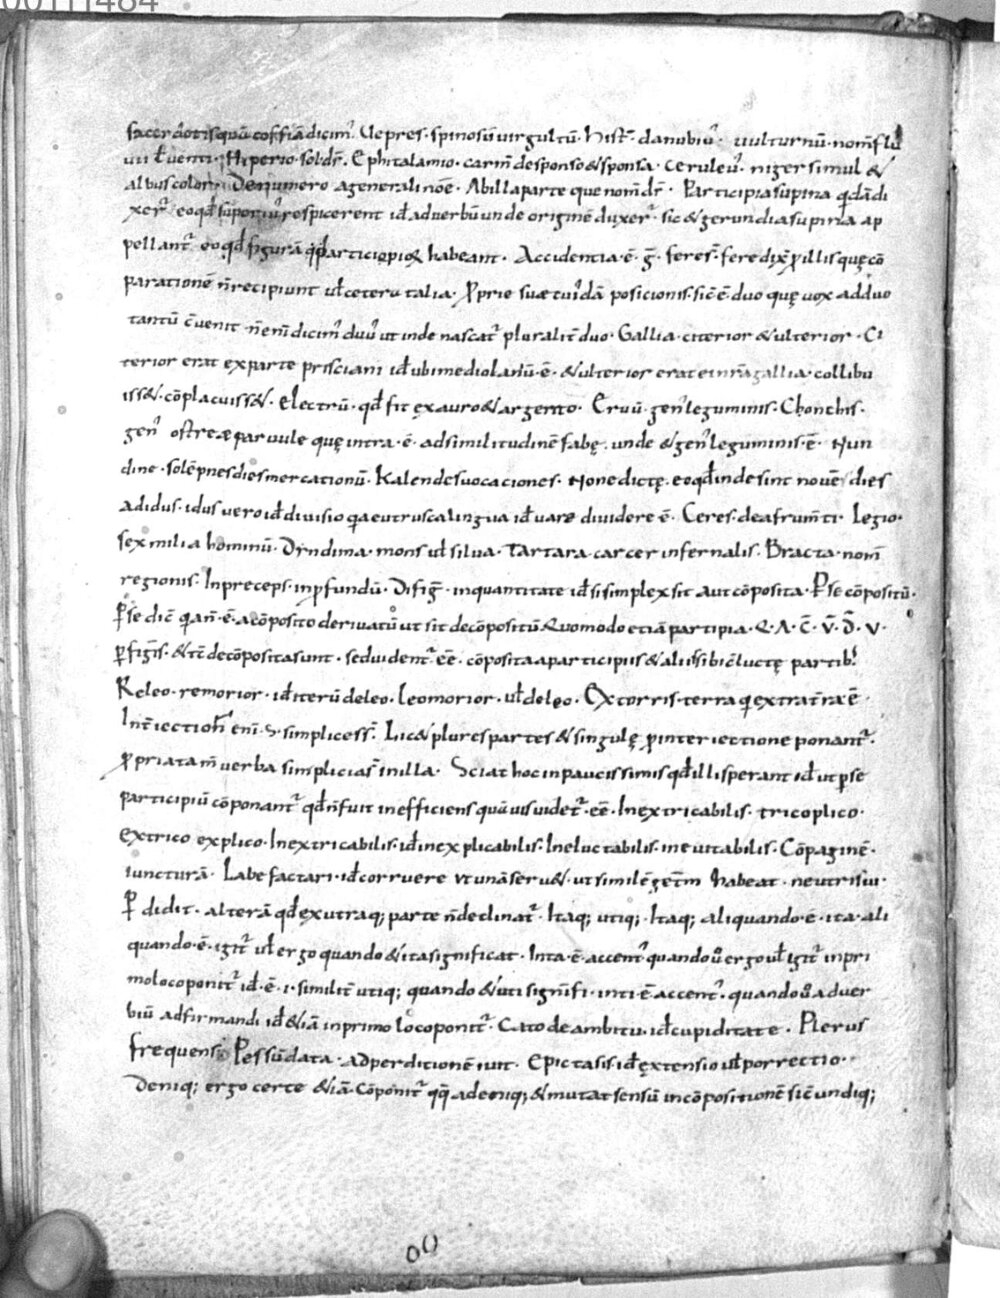 00111484
sacerdotisquā coffiā dicim᷒. Uepres · spinosū uirgultū · hist̄ · danubiu᷒ · uulturnū · nom̄ flu
uii ł uenti · Hiperio · sol dr̄ · Ephitalamio · carm̄ desponso & sponsa · ceruleu᷒ · niger simul &
albus color · Denumero a generali nōe · Abilla parte que nom̄ dr̄ · Participia supina qdādi
xer᷒ eoqđ suponiu᷒ respicerent iđ aduerbiū unde originē duxer᷒ · sic & gerundia supina ap
pellant᷒ eoqđ figurā participioꝝ habeant · Accidentia · ē · ḡ · feres · fere dix̄ ꝑ illis quę cō
parationē n̄ recipiunt uł cetera talia · ꝓprie suae tui᷒ dā posicionis · sic̄ ē duo quę uox adduo
tantū c̄uenit · n̄ eni᷒ dicim᷒ duu᷒ ut inde nascat᷒ pluralit̄ duo · Gallia · citerior & ulterior · Ci
terior erat exparte prisciani iđ ubi mediolanū · ē · & ulterior erat ein rā gallia · collibu
iss& · cōplacuiss& · electrū · qđ fit ex auro & argento · Eruū · gen᷒ leguminis · Chonchis ·
gen᷒ ostreae paruule quę intra · ē · adsimilitudinē fabę · unde & gen᷒ leguminis · ē · Nun
dine · solēpnes dies mercationū · Kalendes uocaciones · None dictę · eoqđ inde sint nouē dies
adidus · idus uero iđ diuisio qa eutrusca lingua iđ uare diuidere ē · Ceres · deafrum̄ti · Legio ·
sex milia hominū · Dyndima · mons uł silua · Tartara · carcer infernalis · Bracta · nom̄
regionis · Inpreceps · inꝓfundū · Difiḡ · inquantitate iđ si simplex sit aut cōposita · Ꝑ se cōpositū ·
ꝑse dic̄ qa n̄ · ē · acōposito deriuatū ut sit decōpositū quomodo etiā partipia · Q · Λ · c̄ · v̄ · D̄ · v ·
ꝑfiḡis · & tc̄ decōposita sunt · sed uident᷒ · ēē · cōposita aparticipiis & aliis sibi c̄luctę partib᷒
Releo · remorior · iđ iterū deleo · leomorior · uł deleo · Extorris · terra qi extra t̄ra ē ·
Int̄iectioni᷒ eni᷒ · S · simplicess᷒ · Lic& plures partes & singulę ꝓ interiectione ponant᷒ ·
ꝓpria tam̄ uerba simplicia s̄ in illa · Sciat hoc inpaucissimis qđ illi sperant iđ ut ꝑ se
participiū cōponant᷒ qđ n̄ fuit inefficiens quāuis uidet᷒ · ēē · Inextricabilis · tricoplico ·
extrico explico · Inextricabilis · iđ inexplicabilis · Ineluctabilis · ineuitabilis · Cōpaginē ·
iuncturā · Labefactari · iđ corruere ut unā seru& · ut similē ḡet̄m habeat · neutrisiu ·
Ꝑ didit · alterā qđ ex utraq; parte n̄ declinat᷒ · Itaq; utiq; · Itaq; aliquando · ē · ita · ali
quando · ē · igit᷒ uł ergo quando & ita significat · Inta · ē · accent᷒ quando ů ergo uł igit᷒ inpri
mo loco ponit᷒ iđ · ē · i · similit̄ utiq; quando & uti signifi · inti · ē accent᷒ · quando ů aduer
biū adfirmandi iđ & iā inprimo locoponit᷒ · Cato deambitu · iđ cupiditate · Plerus
frequens · Pessūdata · adperditionē iuit · Epictasis · iđ extensio uł porrectio ·
Deniq; ergo certe & iā · Cōponit᷒ qq̄ adeniq; & mutat sensū incōpositionē sic̄ undiq;